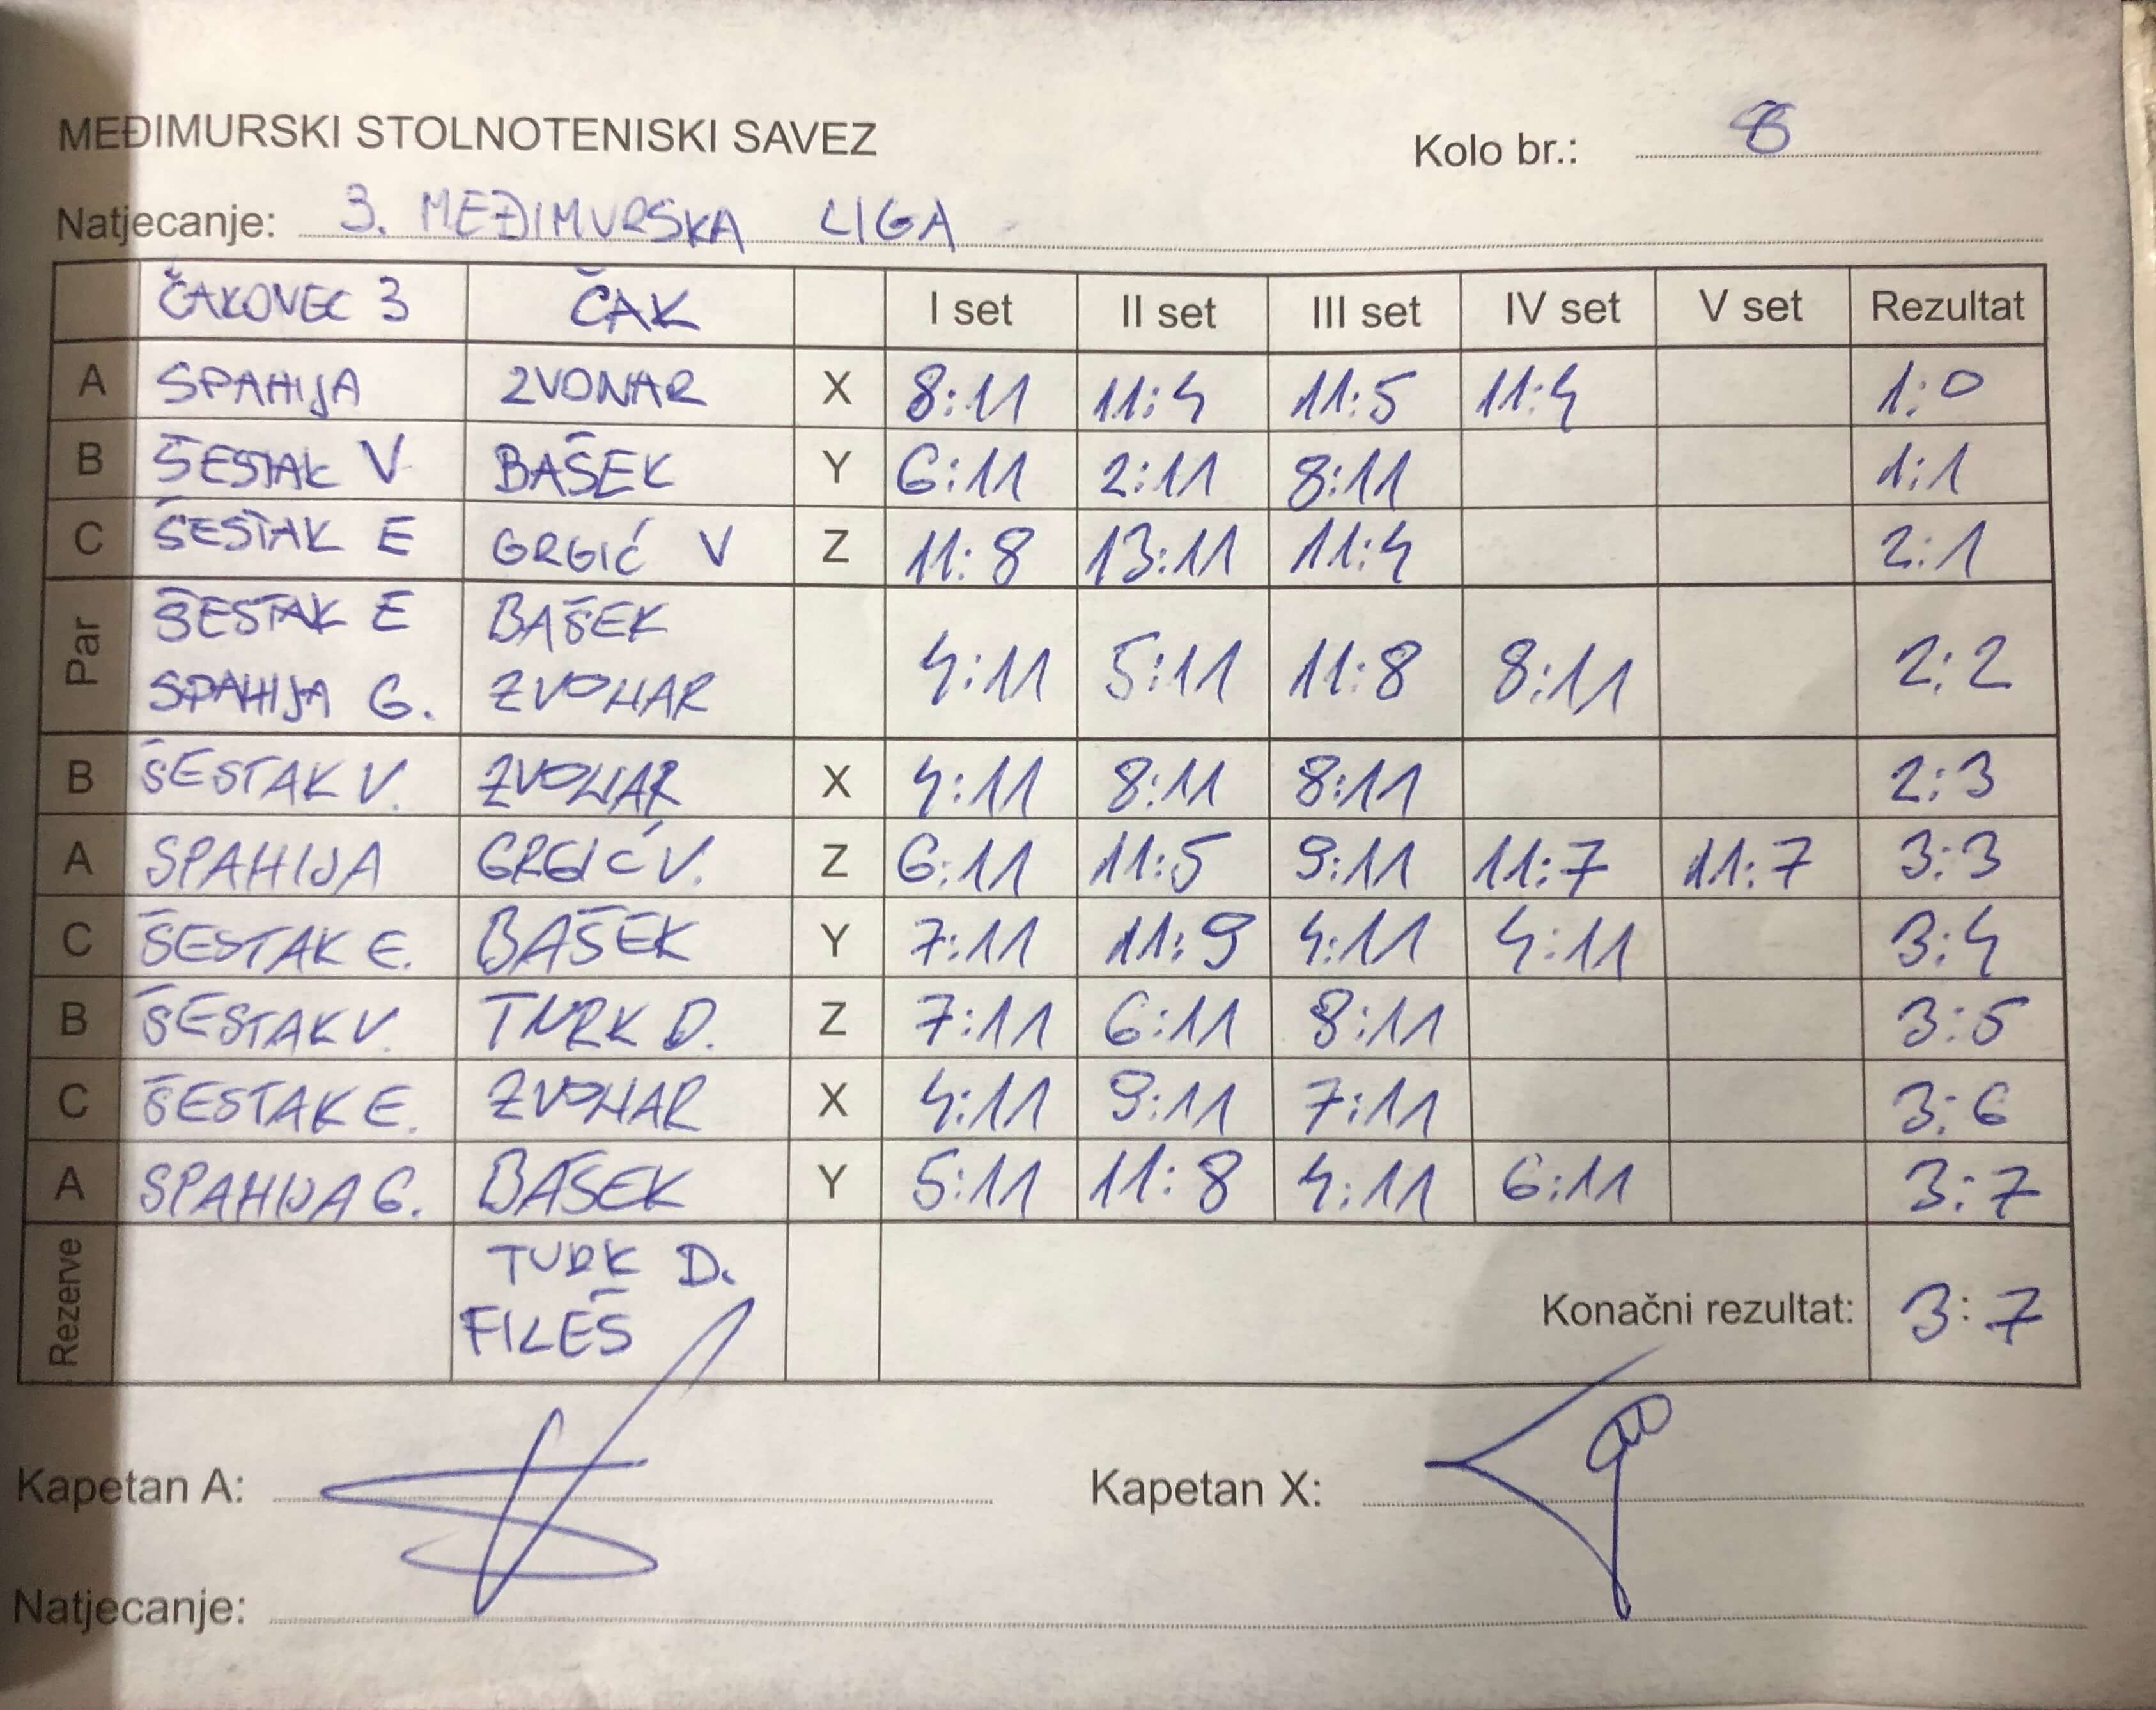 MEĐIMURSKI STOLNOTENISKI SAVEZ
Kolo br.: 8
Natjecanje: 3. MEĐIMURSKA LIGA
ČAKOVEC 3 ČAK I set II set III set IV set V set Rezultat
A SPAHIJA ZVONAR X 8:11 11:4 11:5 11:4 1:0
B ŠESTAK V BAŠEK Y 6:11 2:11 8:11 1:1
C ŠESTAK E GRGIĆ V Z 11:8 13:11 11:4 2:1
Par ŠESTAK E BAŠEK
SPAHIJA G. ZVONAR 4:11 5:11 11:8 8:11 2:2
B ŠESTAK V. ZVONAR X 4:11 8:11 8:11 2:3
A SPAHIJA GRGIĆ V. Z 6:11 11:5 9:11 11:7 11:7 3:3
C ŠESTAK E. BAŠEK Y 7:11 11:9 4:11 4:11 3:4
B ŠESTAK V. TURK D. Z 7:11 6:11 8:11 3:5
C ŠESTAK E. ZVONAR X 4:11 9:11 7:11 3:6
A SPAHIJA G. BAŠEK Y 5:11 11:8 4:11 6:11 3:7
Rezerve TURK D.
FILEŠ
Konačni rezultat: 3:7
Kapetan A: Kapetan X:
Natjecanje: